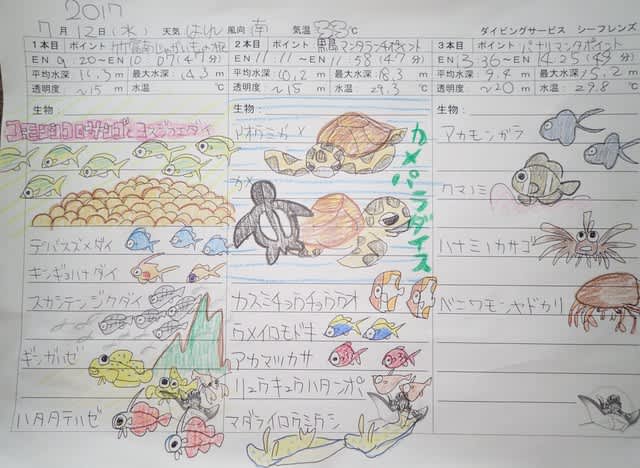 2017
7月12日(水) 天気 はれ 風向 南 気温 33℃ ダイビングサービス シーフレンズ
1本目 ポイント 竹富南じゃがいもの根
EN 9:20~EN 10:07(47分)
平均水深: 11.3m 最大水深: 14.3m
透明度 ~15m 水温: ℃
生物:
コモンシコロサンゴとヨスジフエダイ
デバスズメダイ
キンギョハナダイ
スカシテンジクダイ
ギンガハゼ
ハタタテハゼ
2本目 ポイント 黒島マンタランチポイント
EN 11:11~EN 11:58(47分)
平均水深: 10.2m 最大水深: 18.3m
透明度 ~15m 水温: 29.3℃
生物:
アオウミガメ
カメ
カメパラダイス
カスミチョウチョウウオ
ウメイロモドキ
アカマツカサ
リュウキュウハタンポ
マダライロウミウシ
3本目 ポイント パナリマンタポイント
EN 13:36~EN 14:25(49分)
平均水深: 9.4m 最大水深: 15.2m
透明度 ~20m 水温: 29.8℃
生物:
アカモンガラ
クマノミ
ハナミノカサゴ
ベニワモンヤドカリ